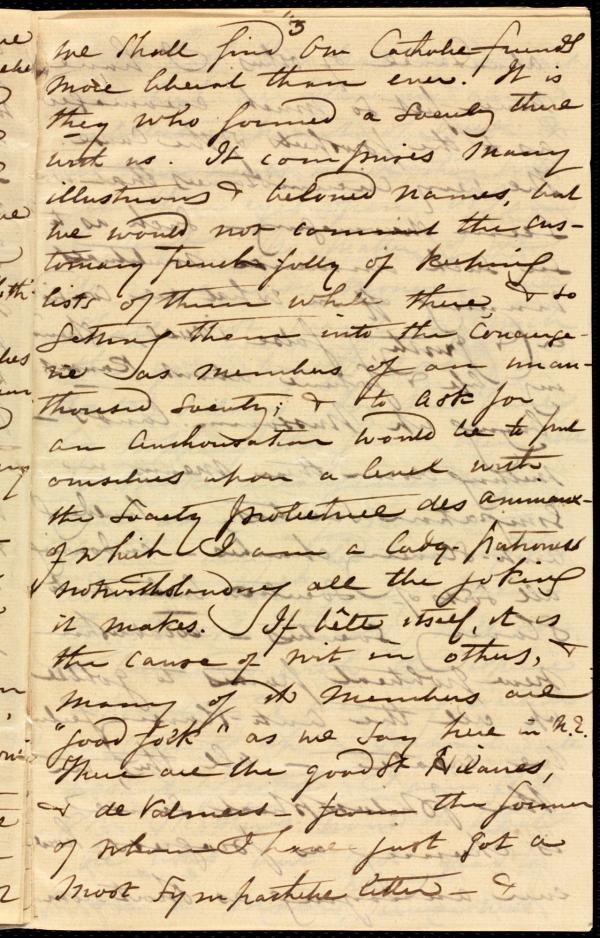 3
we shall find our Catholic friends
more liberal than ever. It is
they who formed a Society there
with us. It comprises many
illustrious & beloved names, but
we would not commit the cus-
tomary french folly of keeping
lists of them while there, & so
getting them into the Concierge-
rie as members of an unau-
thorised Society; & to ask for
an authorisation would be to put
ourselves upon a level with
the Society protectrice des animaux-
of which I am a Lady-patroness
notwithstanding all the joking
it makes. If bête itself, it is
the cause of wit in others, &
many of its members are
"good folk" as we say here in N.E.
There are the good St Hilaires,
& de Valmers - from the former
of whom I have just got a
most sympathetic letter - &